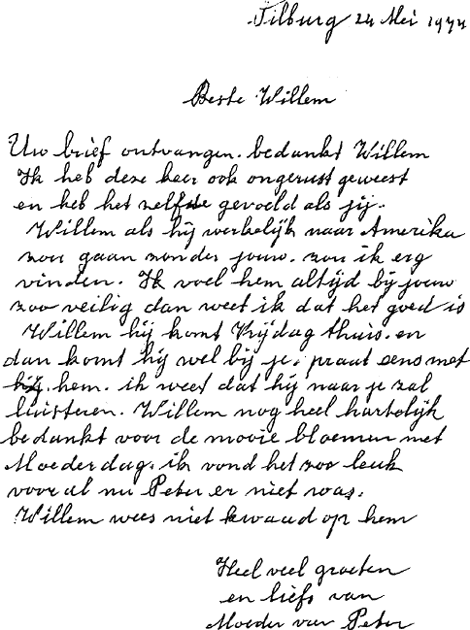 Tilburg 24 Mei 1974
Beste Willem
Uw brief ontvangen. bedankt Willem
Ik heb deze keer ook ongerust geweest
en heb het zelfde gevoeld als jij.
Willem als hij werkelijk naar Amerika
zou gaan zonder jouw. zou ik erg
vinden. Ik voel hem altijd bij jouw
zoo veilig dan weet ik dat het goed is
Willem hij komt Vrijdag thuis. en
dan komt hij wel bij je. praat eens met
hem. ik weet dat hij naar je zal
luisteren. Willem nog heel hartelijk
bedankt voor de mooie bloemen met
Moederdag. ik vond het zoo leuk
vooral nu Peter er niet was.
Willem wees niet kwaad op hem
Heel veel groeten
en liefs van
Moeder van Peter